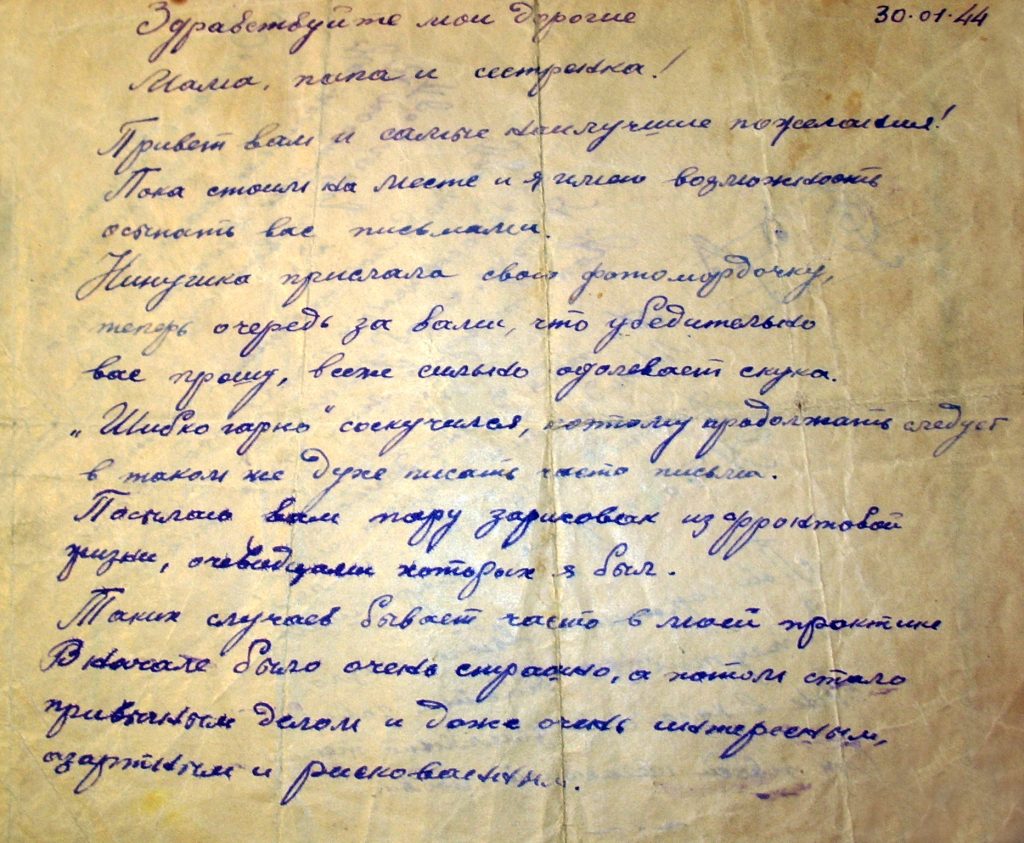 Здравствуйте мои дорогие 30.01.44
Мама, папа и сестренка!
Привет вам и самые наилучшие пожелания!
Пока стоим на месте и я имею возможность
осыпать вас письмами.
Нинушка прислала свою фотомордочку,
теперь очередь за вами, что убедительно
вас прошу, всеже сильно одолевает скука.
„Шибко гарно" соскучился, поэтому продолжать следует
в таком же духе писать часто письма.
Посылаю вам пару зарисовок из фронтовой
жизни, очевидцами которых я был.
Таких случаев бывает часто в моей практике
Вначале было очень страшно, а потом стало
привычным делом и даже очень интересным,
азартным и рискованным.